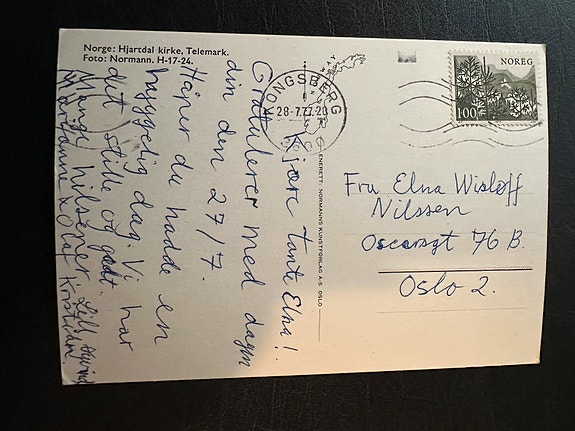 Norge: Hjartdal kirke, Telemark.
Foto: Normann. H-17-24.
Kjære tante Elna!
Gratulerer med dagen
din den 27/7.
Håper du hadde en
hyggelig dag. Vi har
det stille og godt.
Mange hilsener
Marianne Olaf Kristian.
ENERETT: NORMANNS KUNSTFORLAG A/S OSLO
KONGSBERG
28-7.77-20
NOREG
100
Fru Elna Wisløff
Nilssen
Oscarsgt 76 B.
Oslo 2.